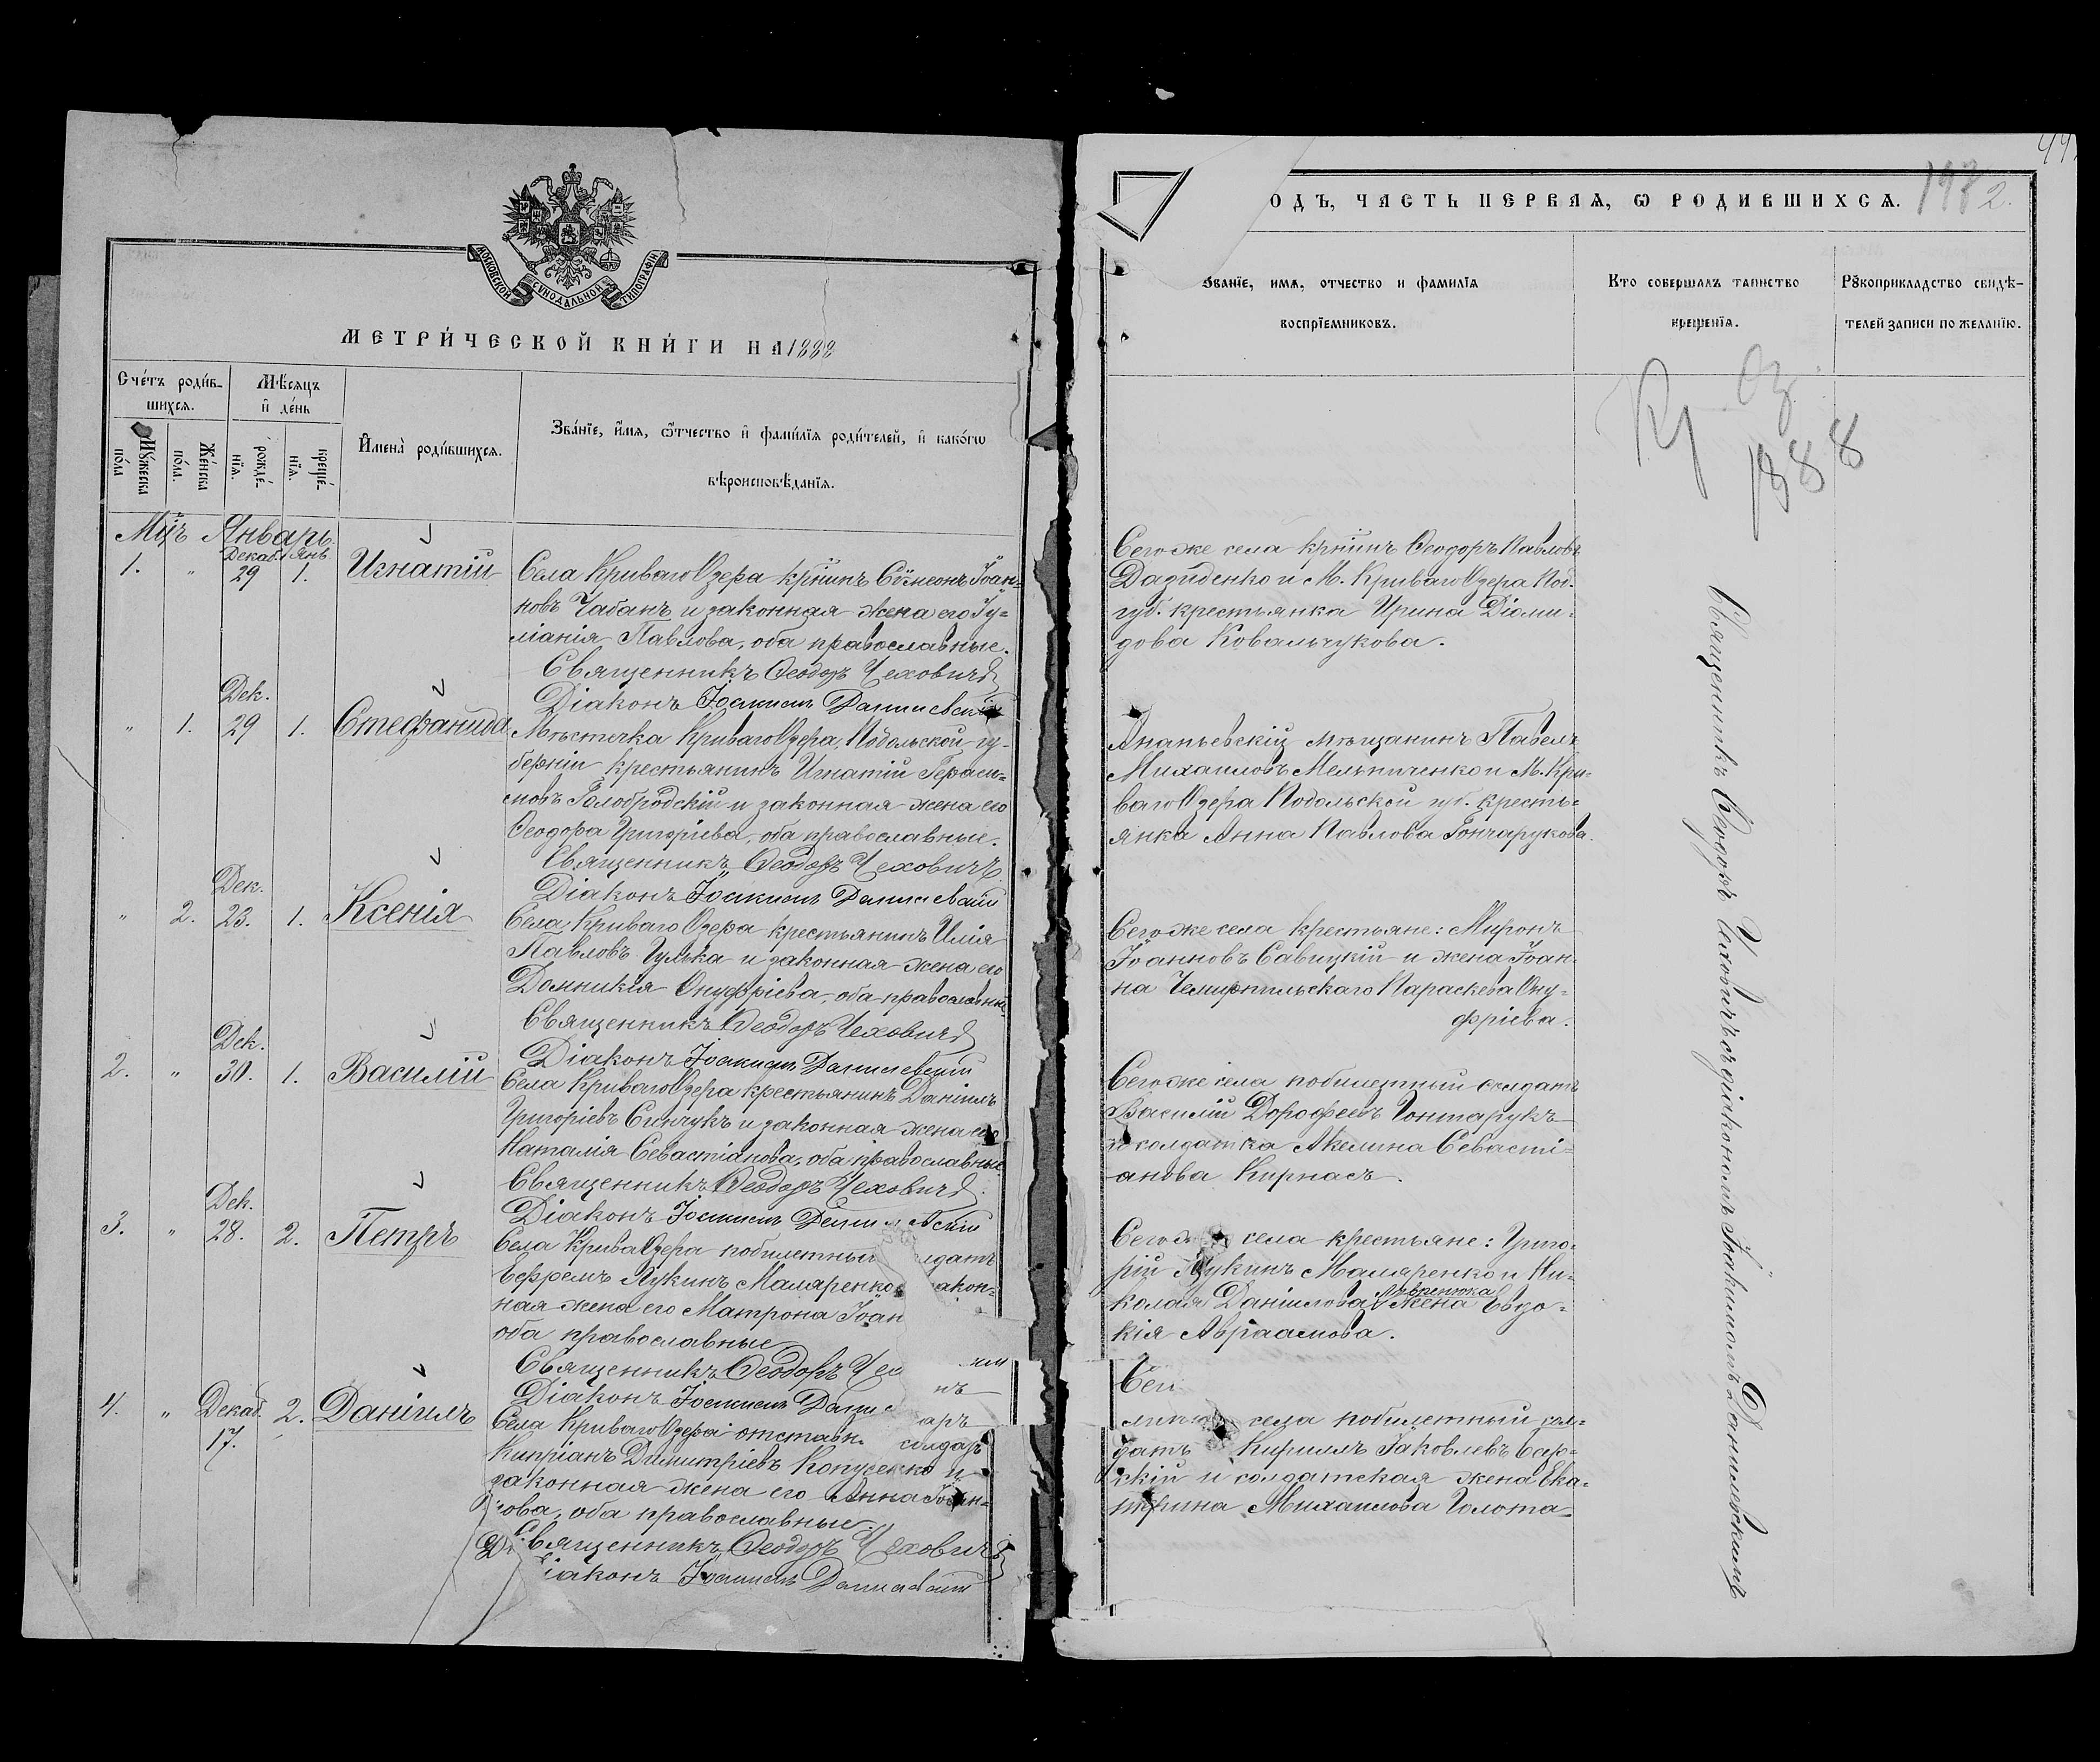 МОСКОВСКОЙ СѴНОДАЛЬНОЙ ТИПОГРАФІИ
МЕТРИ́ЧЕСКОЙ КНИ́ГИ НА 1888
Сче́тъ роди́в-
шихсѧ.
Мѣ́сѧцъ
и҆ де́нь
Мꙋ́жеска
по́ла
Же́нска
по́ла.
рожде́-
нїѧ.
креще́-
нїѧ.
И҆мена̀ роди́вшихсѧ.
Зва́нїе, и҆́мѧ, ѻ҆́тчество и҆ фами́лїѧ роди́телей, и҆ како́гѡ
вѣроисповѣ́данїѧ.
Мцъ Январь.
1. " Декаб. 29 Янв. 1. Игнатій
Села Криваго Озера крнинъ Сѵмеонъ Іоан-
новъ Чабанъ и законная жена его Іу-
ліанія Павлова, оба православные.
Священникъ Ѳеодоръ Чеховичъ
Діаконъ Іоакимъ Данилевскій
" 1. Дек. 29 1. Стефанида
Мѣстечка Криваго Озера, Подольской гу-
берніи крестьянинъ Игнатій Гераси-
мовъ Голобродскій и законная жена его
Ѳеодора Григоріева, оба православные.
Священникъ Ѳеодоръ Чеховичъ
Діаконъ Іоакимъ Данилевскій
" 2. Дек. 23. 1. Ксенія
Села Криваго Озера крестьянинъ Илія
Павловъ Гулька и законная жена его
Домникія Онуфріева, оба православные
Священникъ Ѳеодоръ Чеховичъ
Діаконъ Іоакимъ Данилевскій
2. " Дек. 30. 1. Василій
Села Криваго Озера крестьянинъ Даніилъ
Григоріевъ Синчукъ и законная жена его
Наталія Севастіанова, оба православные.
Священникъ Ѳеодоръ Чеховичъ.
Діаконъ Іоакимъ Данилевскій
3. " Дек. 28. 2. Петръ
Села Крива Озера побилетный лдатъ
Ефремъ Лукинъ Маляренко акон-
ная жена его Матрона Іоан
оба православные
Священникъ Ѳеодоръ Чех
Діаконъ Іоакимъ Данил
4. " Декаб. 17. 2. Даніилъ
Села Криваго Озера отставн. солдатъ
Кипріанъ Димитріевъ Копусенко и
законная жена его Анна Іоан-
нова, оба православные.
Священникъ Ѳеодоръ Чеховичъ
Діаконъ Іоакимъ Данилевскій
44.
ОДЪ, ЧАСТЬ ПЕРВАѦ, Ѡ РОДИВШИХСѦ.
2.
Званїе, имѧ, отчество и фамилїѧ
воспрїемниковъ.
Кто совершалъ таинство
крещенїѧ.
Рꙋкоприкладство свидѣ-
телей записи по желанїю.
Кр. Оз.
1888
Сегоже села крнинъ Ѳеодоръ Павловъ
Давиденко и М. Криваго Озера Под.
губ. крестьянка Ирина Діоми-
дова Ковальчукова.
Ананьевскій мѣщанинъ Павелъ
Михаиловъ Мельниченко и М. Кри-
ваго Озера Подольской губ. кресть-
янка Анна Павлова Гончарукова.
Сегоже села крестьяне: Миронъ
Іоанновъ Савицкій и жена Іоан-
на Чемирпильскаго Параскева Ону-
фріева.
Сегоже села побилетный солдатъ
Василій Дорофеевъ Гонтарукъ
и солдатка Акелина Севасті-
анова Кирнасъ.
Сегож села крестьяне: Григо-
рій Лукинъ Маляренко и Ни-
колая Даніилова Лавренюка жена Евдо-
кія Авраамова.
Сег
села побилетный сол-
датъ Кириллъ Іаковлевъ
скій и солдатская жена Ека-
терина Михаилова Голота
Священникъ Ѳеодоръ Чеховичъ съ діакономъ Іоакимомъ Данилевскимъ